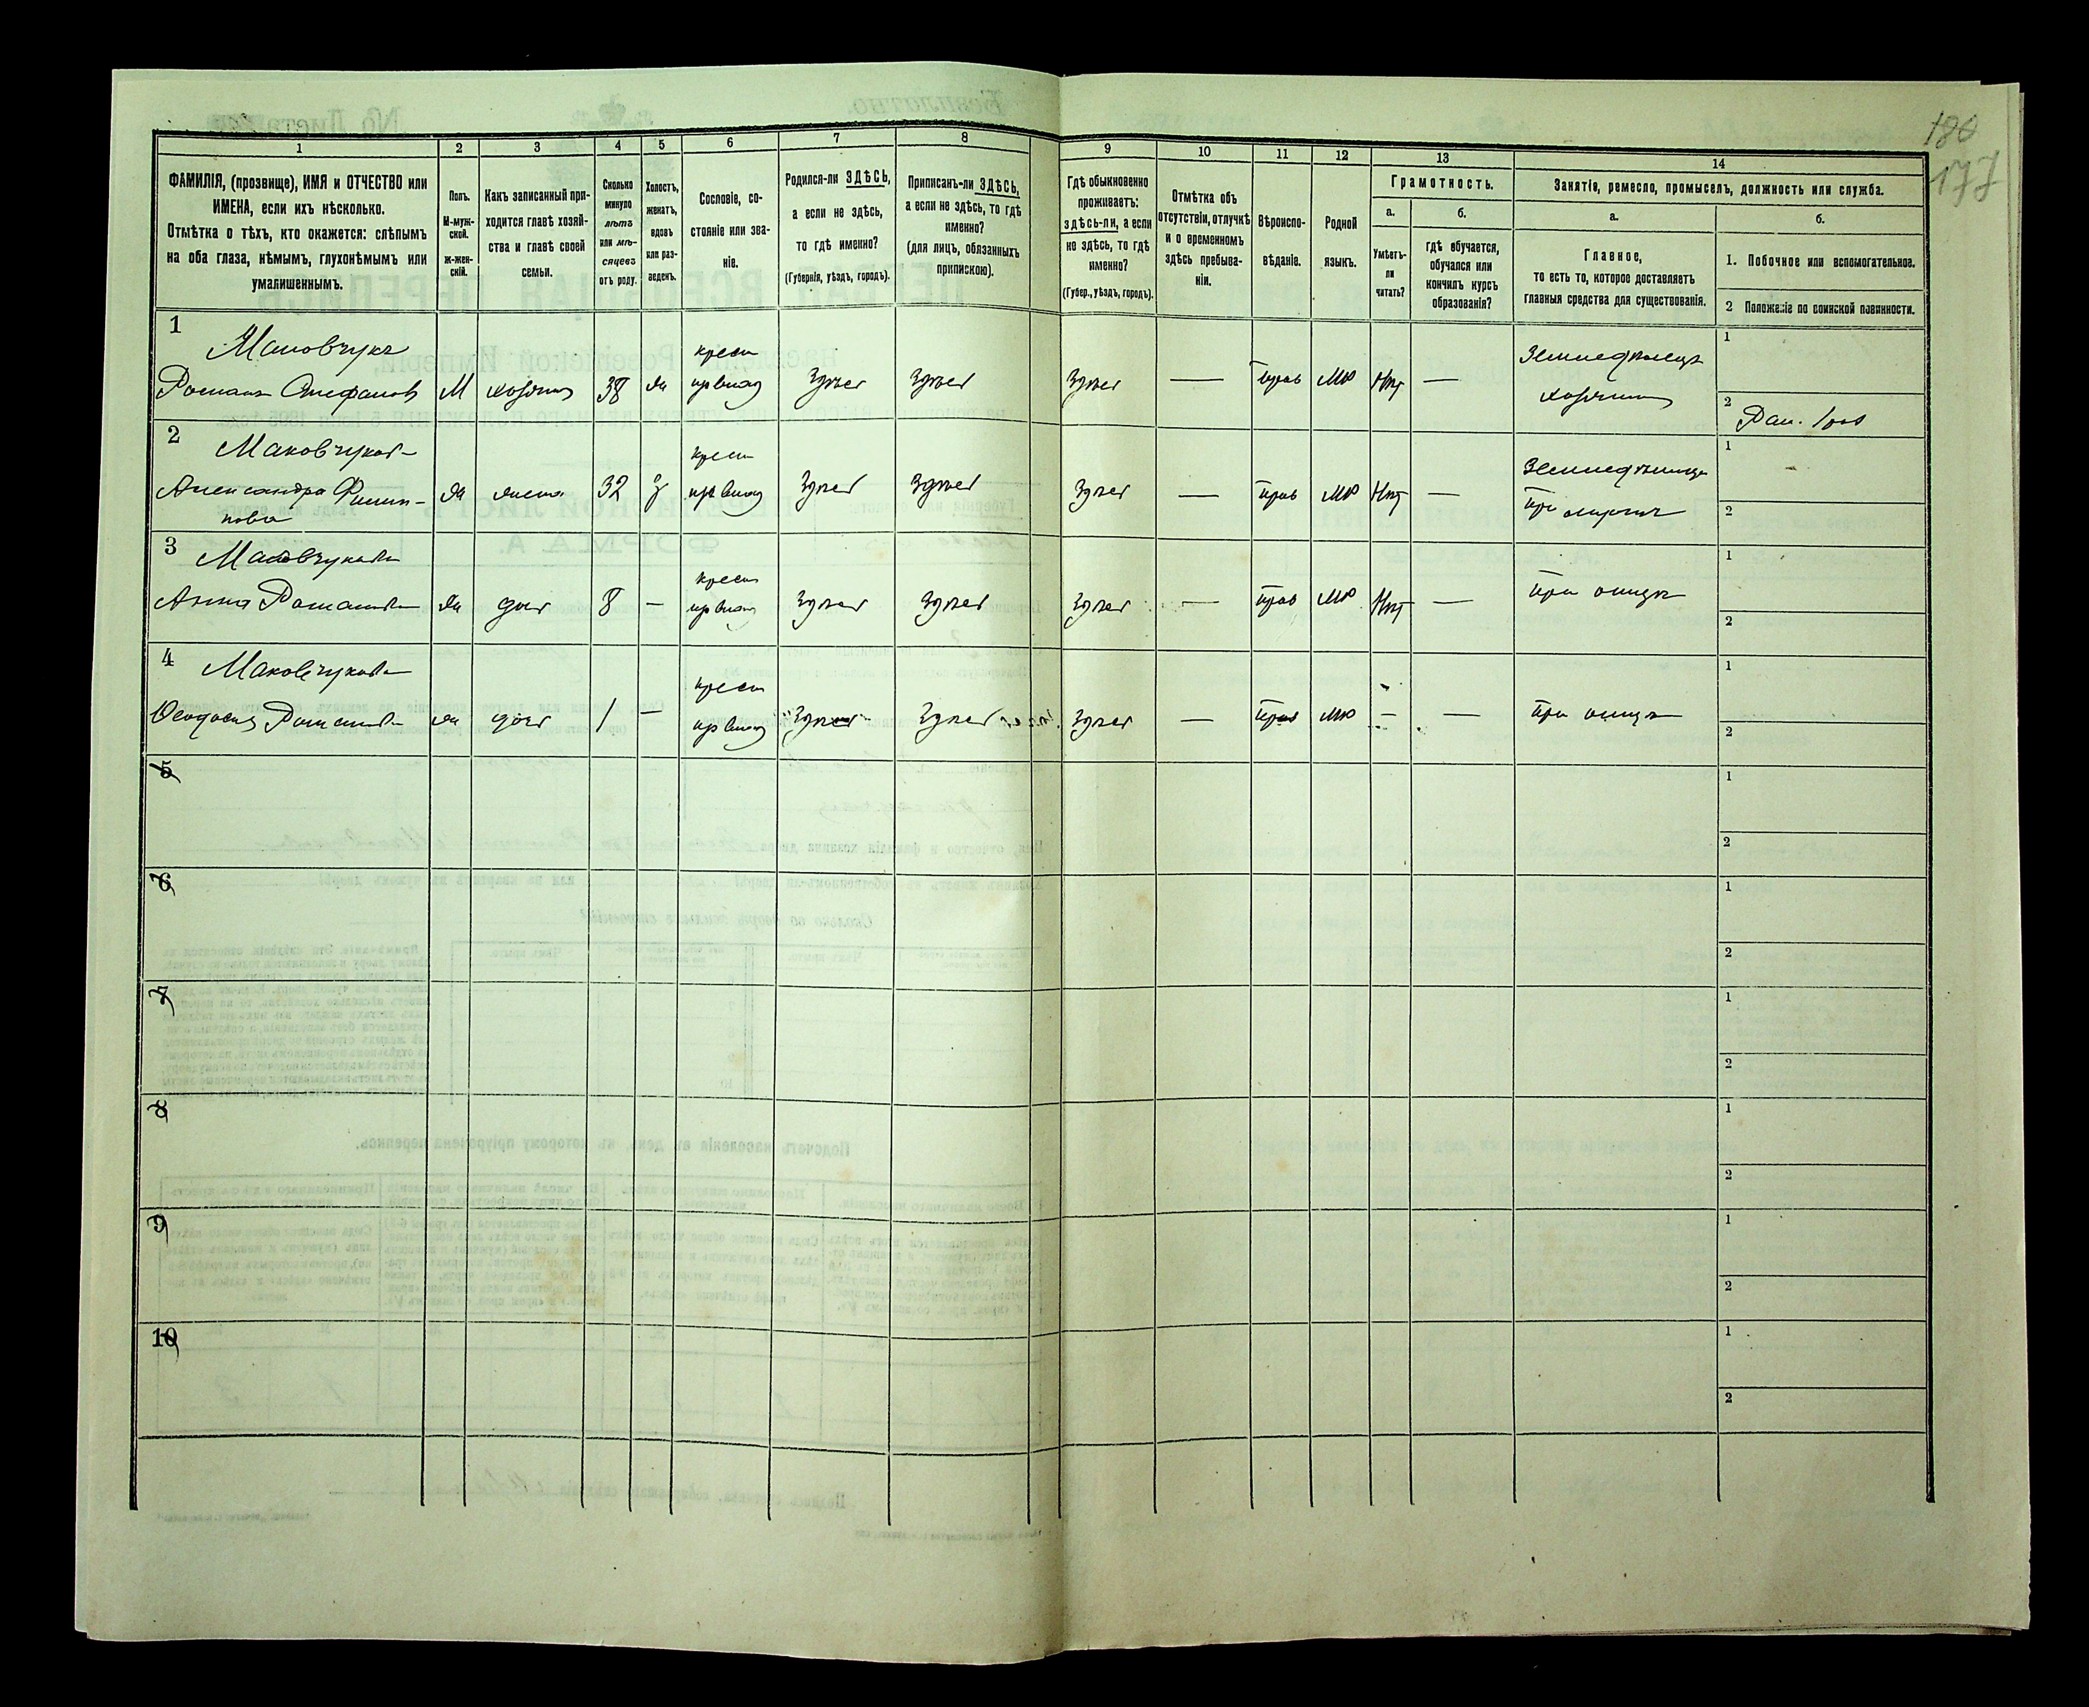 180
177
1
2
3
4
5
6
7
8
9
10
11
12
13
14
ФАМИЛІЯ, (прозвище), ИМЯ и ОТЧЕСТВО или
ИМЕНА, если ихъ нѣсколько.
Отмѣтка о тѣхъ, кто окажется: слѣпымъ
на оба глаза, нѣмымъ, глухонѣмымъ или
умалишеннымъ.
Полъ.
М-муж-
ской.
Ж-жен-
скій.
Какъ записанный при-
ходится главѣ хозяй-
ства и главѣ своей
семьи.
Сколько
минуло
лѣтъ
или мѣ-
сяцевъ
отъ роду.
Холостъ,
женатъ,
вдовъ
или раз-
веденъ.
Сословіе, со-
стояніе или зва-
ніе.
Родился-ли ЗДѢСЬ,
а если не здѣсь,
то гдѣ именно?
(Губернія, уѣздъ, городъ).
Приписанъ-ли ЗДѢСЬ,
а если не здѣсь, то гдѣ
именно?
(для лицъ, обязанныхъ
припискою).
Гдѣ обыкновенно
проживаетъ:
здѣсь-ли, а если
не здѣсь, то гдѣ
именно?
(Губер., уѣздъ, городъ).
Отмѣтка объ
отсутствіи, отлучкѣ
и о временномъ
здѣсь пребыва-
ніи.
Вѣроиспо-
вѣданіе.
Родной
языкъ.
Грамотность.
а.
б.
Умѣетъ-
ли
читать?
Гдѣ обучается,
обучался или
кончилъ курсъ
образованія?
Занятіе, ремесло, промыселъ, должность или служба.
а.
б.
Главное,
то есть то, которое доставляетъ
главныя средства для существованія.
1. Побочное или вспомогательное.
2 Положеніе по воинской повинности.
1
Маковчукъ
Романъ Стефановъ
М
хозяинъ
38
ж
крест
из влад
Здѣсь
Здѣсь
Здѣсь
—
Прав
Мю
Нѣт
—
Земледѣлецъ
хозяинъ
1
2
2
Маковчукова
Александра Филип-
пова
ж
жена
32
з
крест
из влад
Здѣсь
Здѣсь
Здѣсь
—
Прав
Мю
Нѣт
—
при
1
2
3
Маковчукова
Анна Романова
ж
доч
8
—
крест
из влад
Здѣсь
Здѣсь
Здѣсь
—
Прав
Мю
Нѣт
—
При отцѣ
1
2
4
Маковчукова
Феодосія Романова
ж
доч
1
—
крест
из влад
Здѣсь
Здѣсь
Здѣсь
—
Прав
Мю
—
—
При отцѣ
1
2
5
1
2
6
1
2
7
1
2
8
1
2
9
1
2
10
1
2